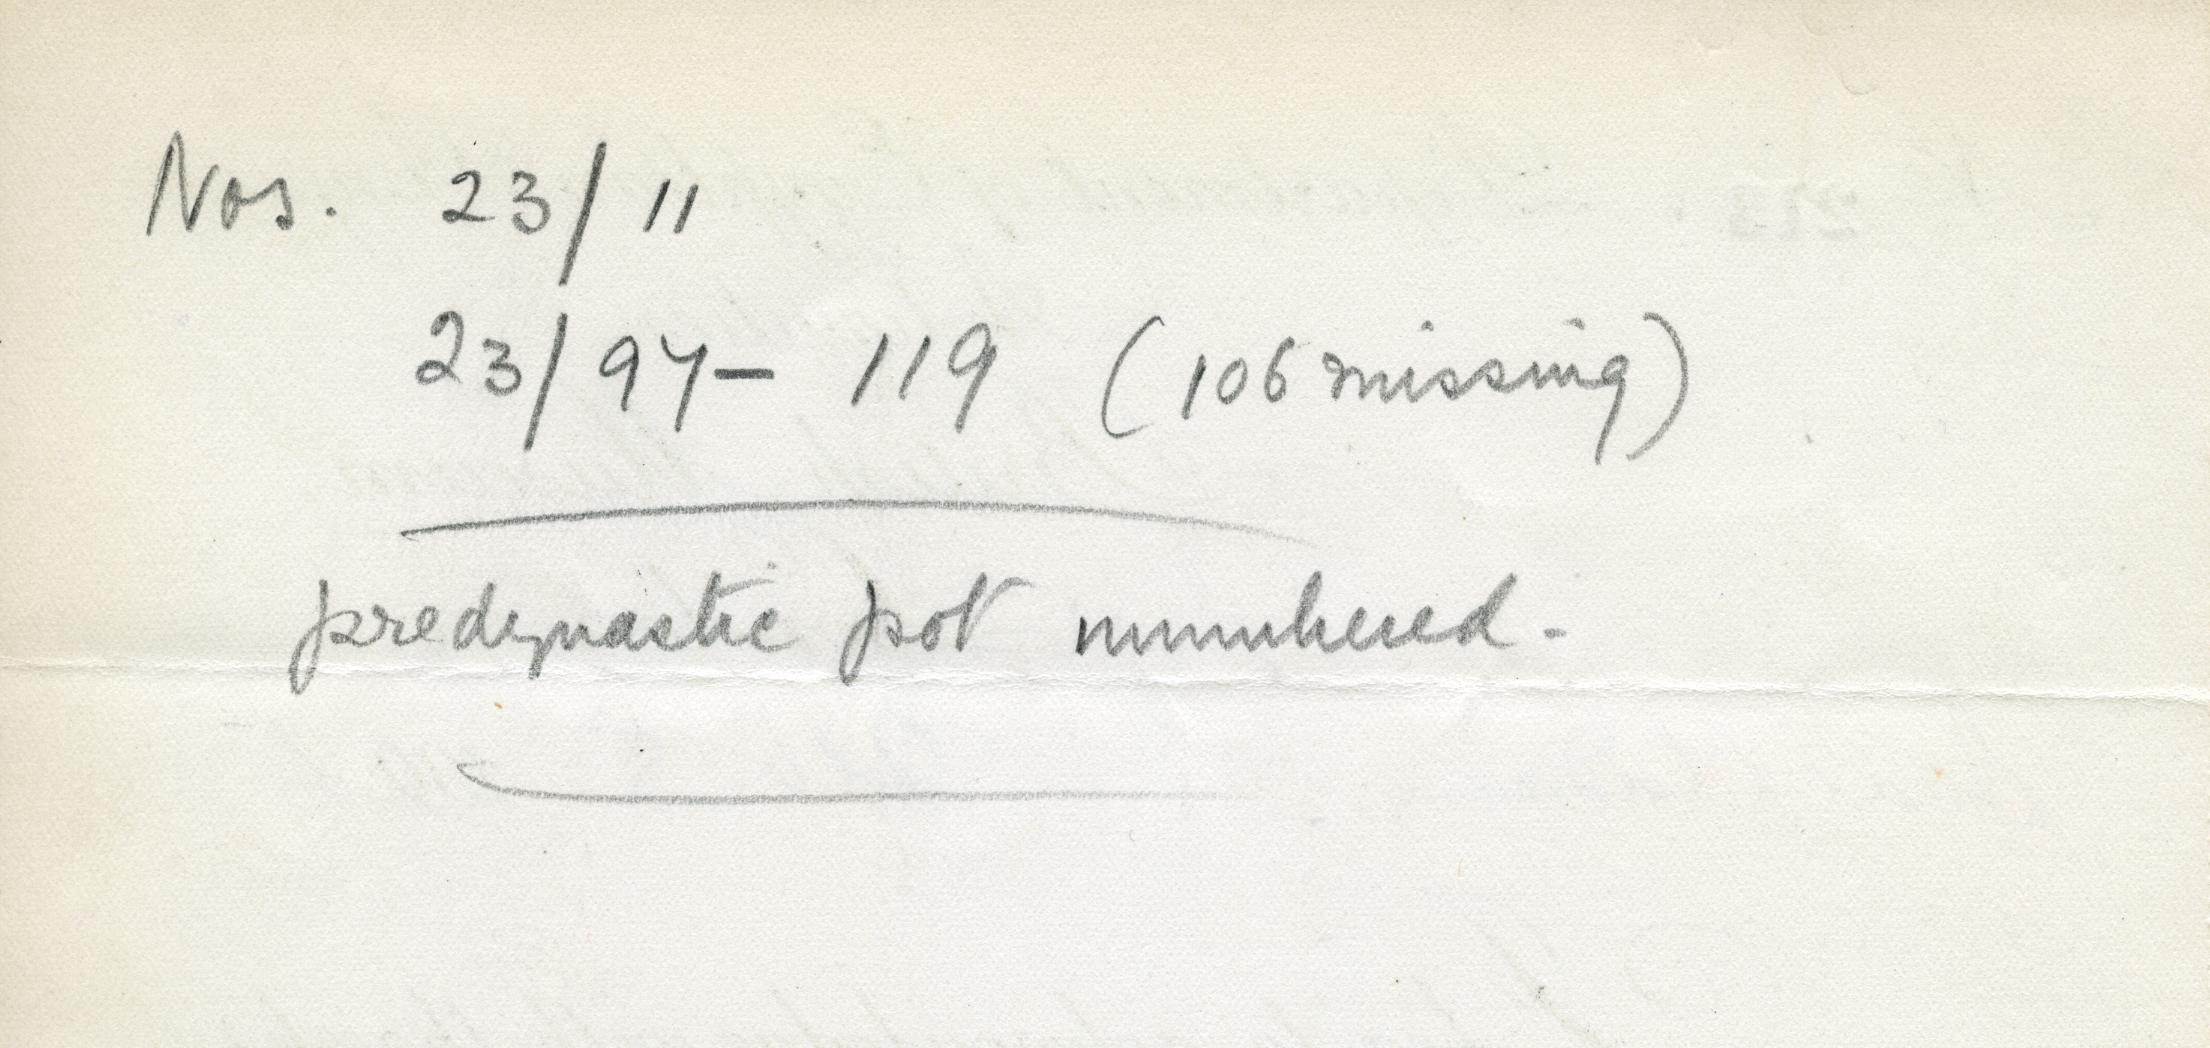 Nos. 23/11
23/97- 119 (106 missing)
predynastic pot numbered.